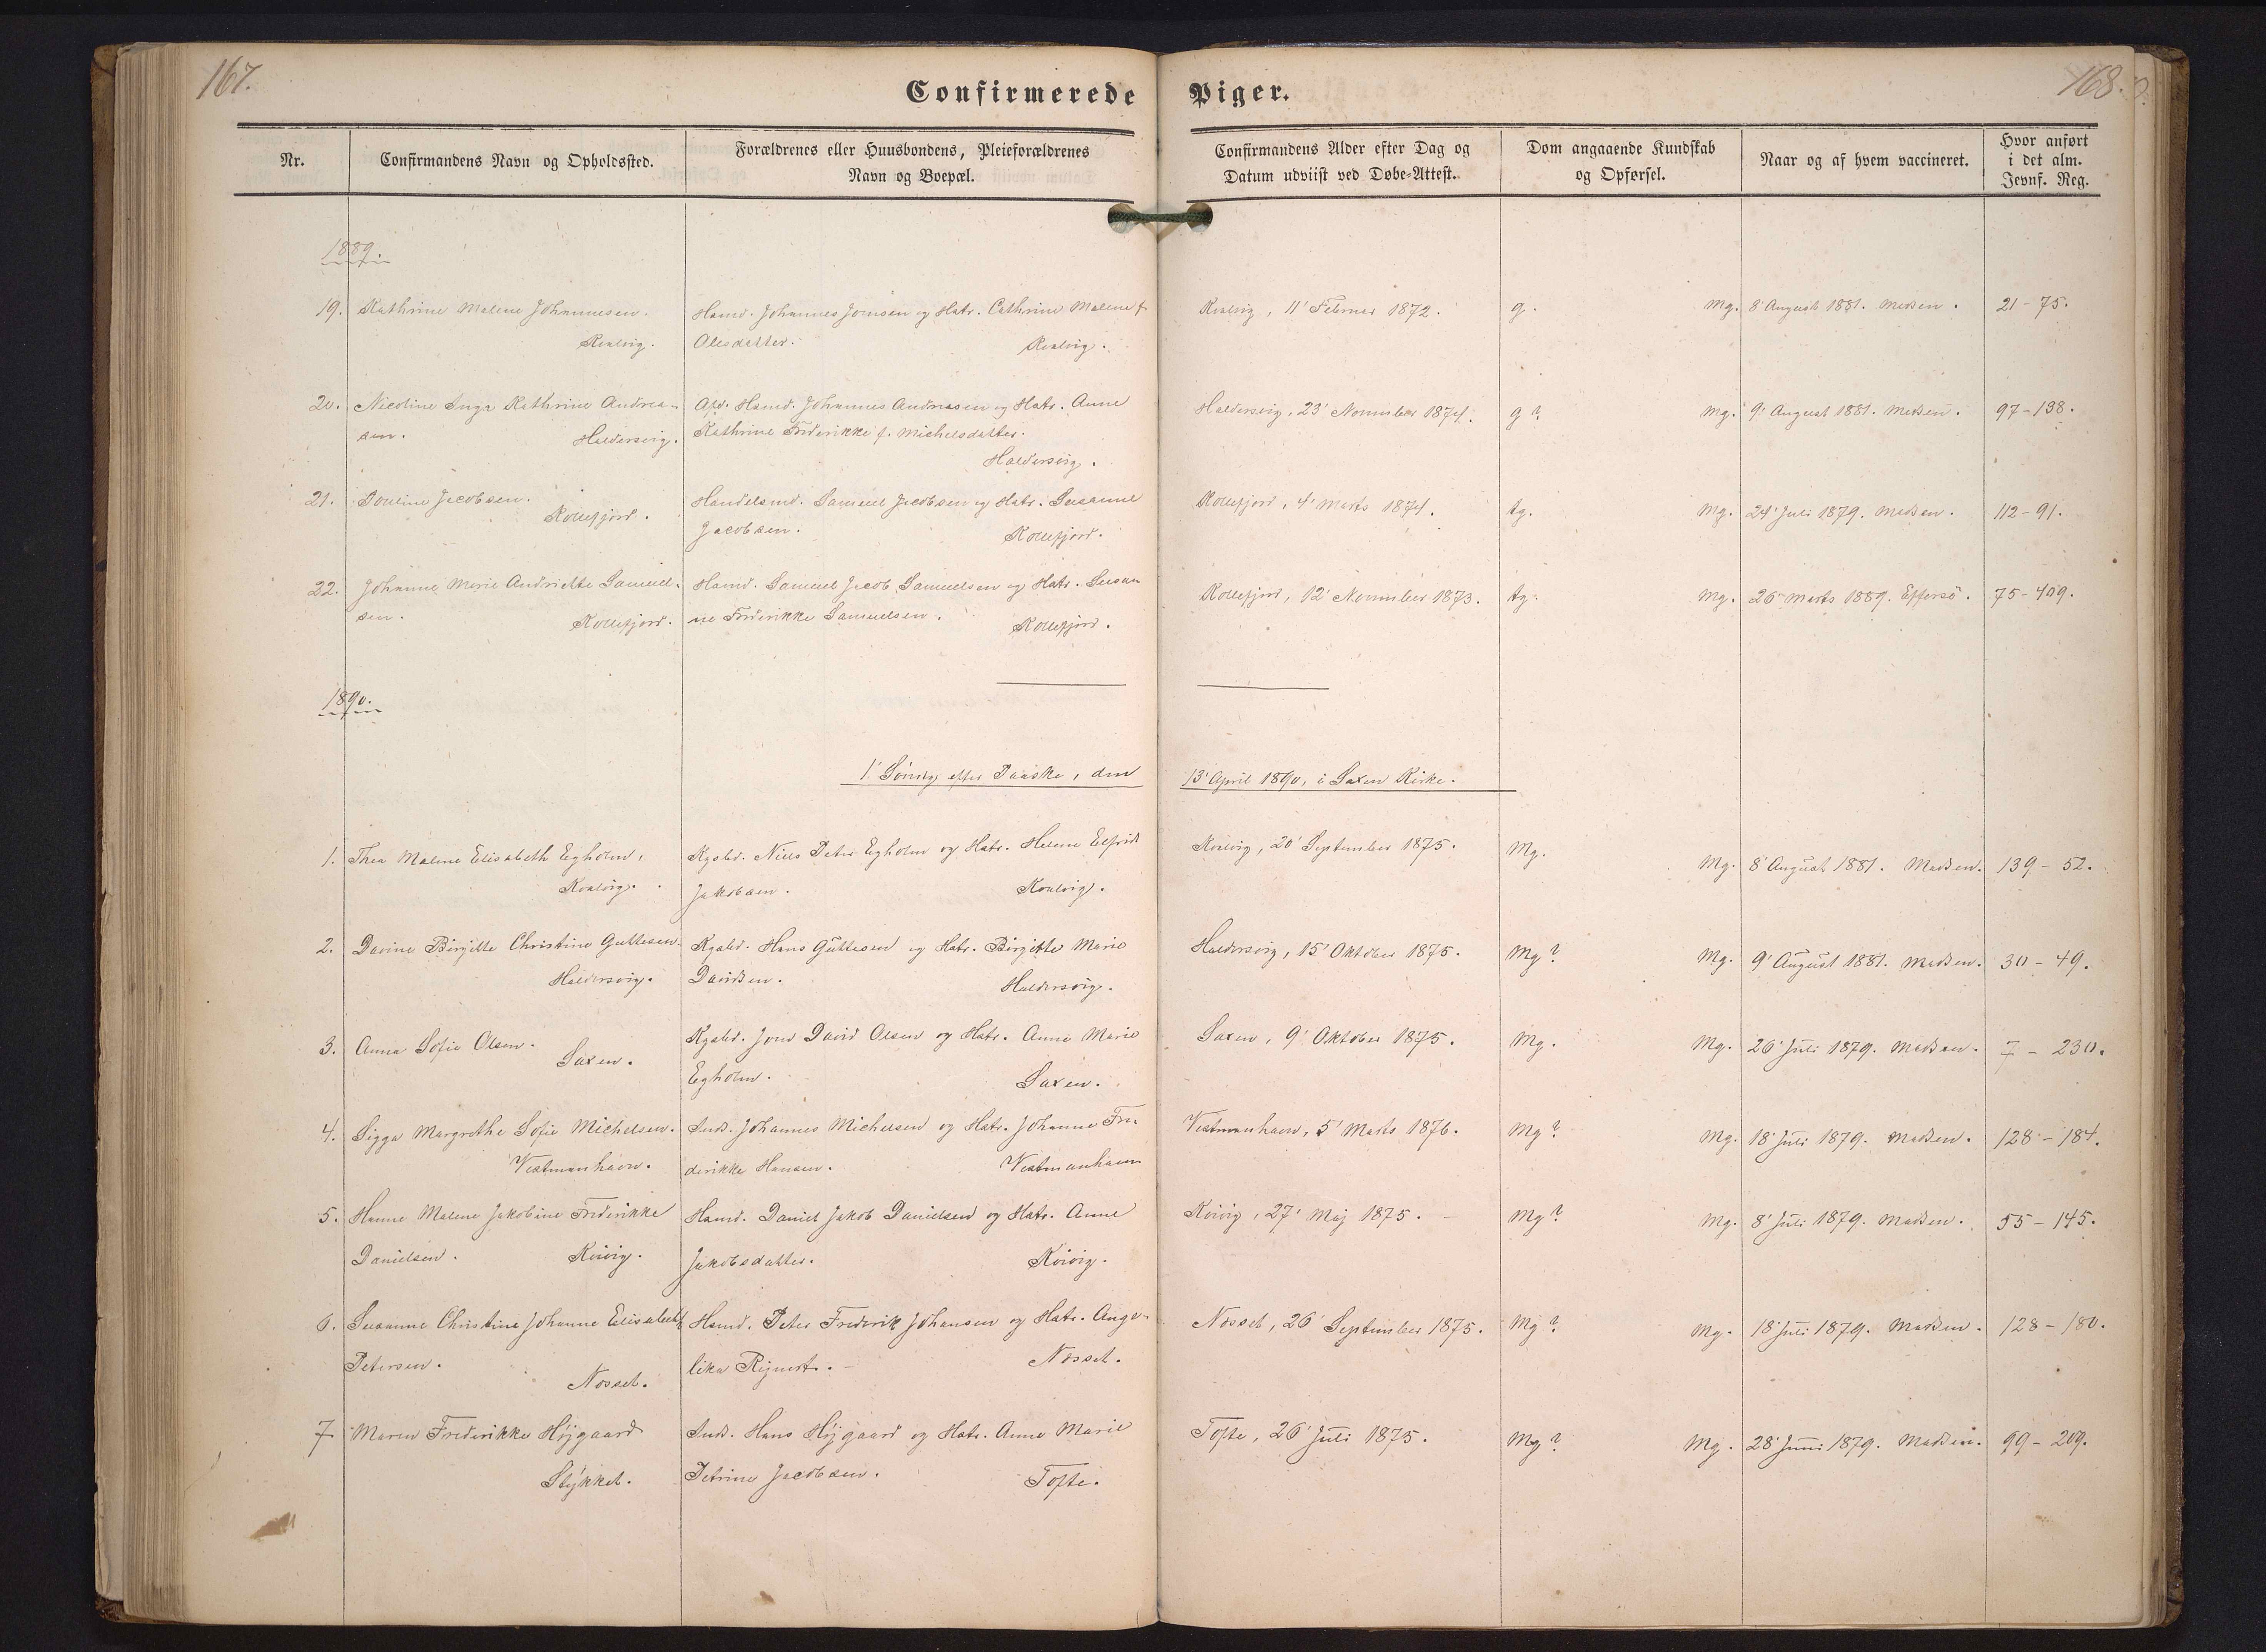 167.
168.
Confirmerede Piger.
Nr.
Confirmandens Navn og Opholdssted.
Forældrenes eller Huusbondens, Pleieforældrenes
Navn og Boepæl.
Confirmandens Alder efter Dag og
Datum udviist ved Døbe-Attest.
Dom angaaende Kundskab
og Opførsel.
Naar og af hvem vaccineret.
Hvor anført
i det alm.
Jevnf. Reg.
1889.
19. Kathrine Malene Johannesen. Hamd. Johannes Joensen og Hstr. Cathrine Malene f. Kvalvig, 11' Februar 1872. g. Mg. 8' August 1881. Madsen. 21-75.
Kvalvig. Olesdatter. Kvalvig.
20. Nicoline Inga Kathrine Andrea- Afd. Hamd. Johannes Andreasen og Hstr. Anne Haldersvig, 23' November 1874. g? Mg. 9' August 1881. Madsen. 97-138.
sen. Haldersvig. Kathrine Frederikke f. Michelsdatter.
Haldersvig.
21. Pouline Jacobsen. Handelsmd. Samuel Jacobsen og Hstr. Susanne Kollefjord, 4' Marts 1874. tg. Mg. 24' Juli 1879. Madsen. 112-91.
Kollefjord. Jacobsen. Kollefjord.
22. Johanne Marie Andriette Samuel- Hamd. Samuel Jacob Samuelsen og Hstr. Susan- Kollefjord, 12' November 1873. tg. Mg. 26' Marts 1889. Effersø. 75-409.
sen. Kollefjord. ne Frederikke Samuelsen. Kollefjord.
1890.
1' Søndag efter Paaske, den 13' April 1890, i Saxen Kirke.
1. Thea Malene Elisabeth Egholm, Kgsbd. Niels Peter Egholm og Hstr. Helene Elfrida Kvalvig, 20' September 1875. Mg. Mg. 8' August 1881. Madsen. 139-52.
Kvalvig. Jakobsen. Kvalvig.
2. Davine Birgitte Christine Guttesen. Kgsbd. Hans Guttesen og Hstr. Birgitte Marie Haldersvig, 15' Oktober 1875. Mg? Mg. 9' August 1881. Madsen. 30-49.
Haldersvig. Davidsen. Haldersvig.
3. Anna Sofie Olsen. Kgsbd. Joen David Olsen og Hstr. Anna Marie Saxen, 9' Oktober 1875. Mg. Mg. 26' Juli 1879. Madsen. 7-230.
Saxen. Egholm. Saxen.
4. Sigga Margrethe Sofie Michelsen. Inds. Johannes Michelsen og Hstr. Johanne Fre- Vestmanhavn, 5' Marts 1876. Mg? Mg. 18' Juli 1879. Madsen. 128-184.
Vestmanhavn. derikke Hansen. Vestmanhavn
5. Hanne Malene Jakobine Frederikke Hamd. Daniel Jakob Danielsen og Hstr. Anne Kvivig, 27' Maj 1875. Mg? Mg. 8' Juli 1879. Madsen. 55-145.
Danielsen. Kvivig. Jakobsdatter. Kvivig.
6. Susanne Christine Johanne Elisabeth Hamd. Peter Frederik Johansen og Hstr. Ange- Næsset, 26' September 1875. Mg? Mg. 18' Juli 1879. Madsen. 128-180.
Petersen. Næsset. lika Rejnert. Næsset.
7 Maren Frederikke Højgaard Inds. Hans Højgaard og Hstr. Anne Marie Tofte, 26' Juli 1875. Mg? Mg. 28' Juni 1879. Madsen. 99-209.
Stykket. Petrine Jacobsen. Tofte.